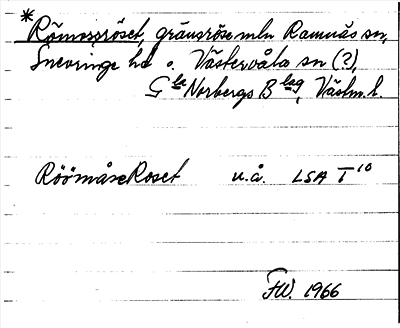 *Römossröset, gränsröse mln Ramnäs sn,
Snevringe hd o. Västervåla sn (?),
Gla Norbergs Blag, Västm. l.
RöömåseRoset u.å. LSA T10
FW. 1966